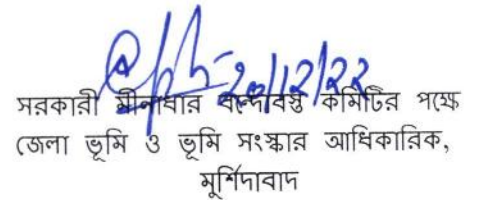 20/12/22
সরকারী মীনাধার বন্দোবস্ত কমিটির পক্ষে
জেলা ভূমি ও ভূমি সংস্কার আধিকারিক,
মুর্শিদাবাদ